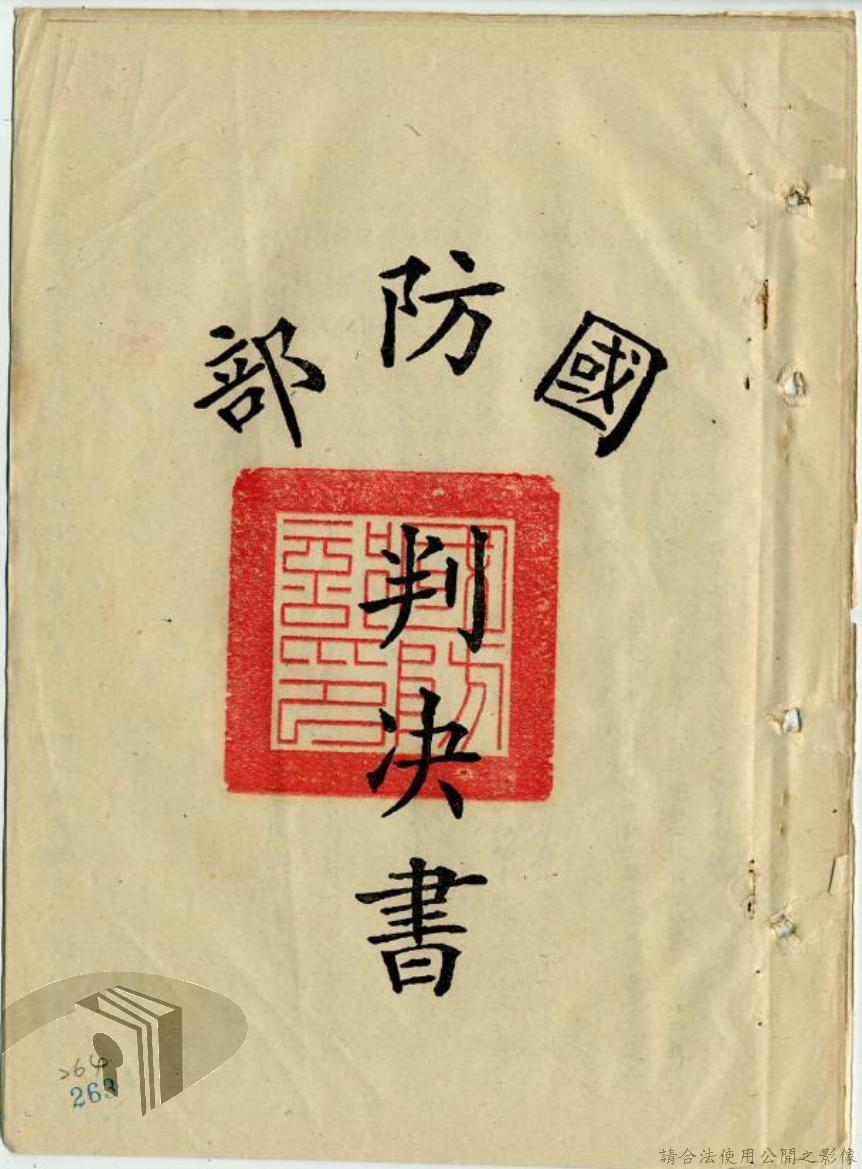 國防部
判決書
國防部印
264
263
請合法使用公開之影像